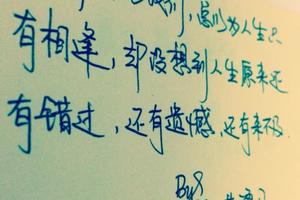 别,总以为人生只
有相逢,却没想到人生原来还
有错过,还有遗憾,还有来不及.
By8